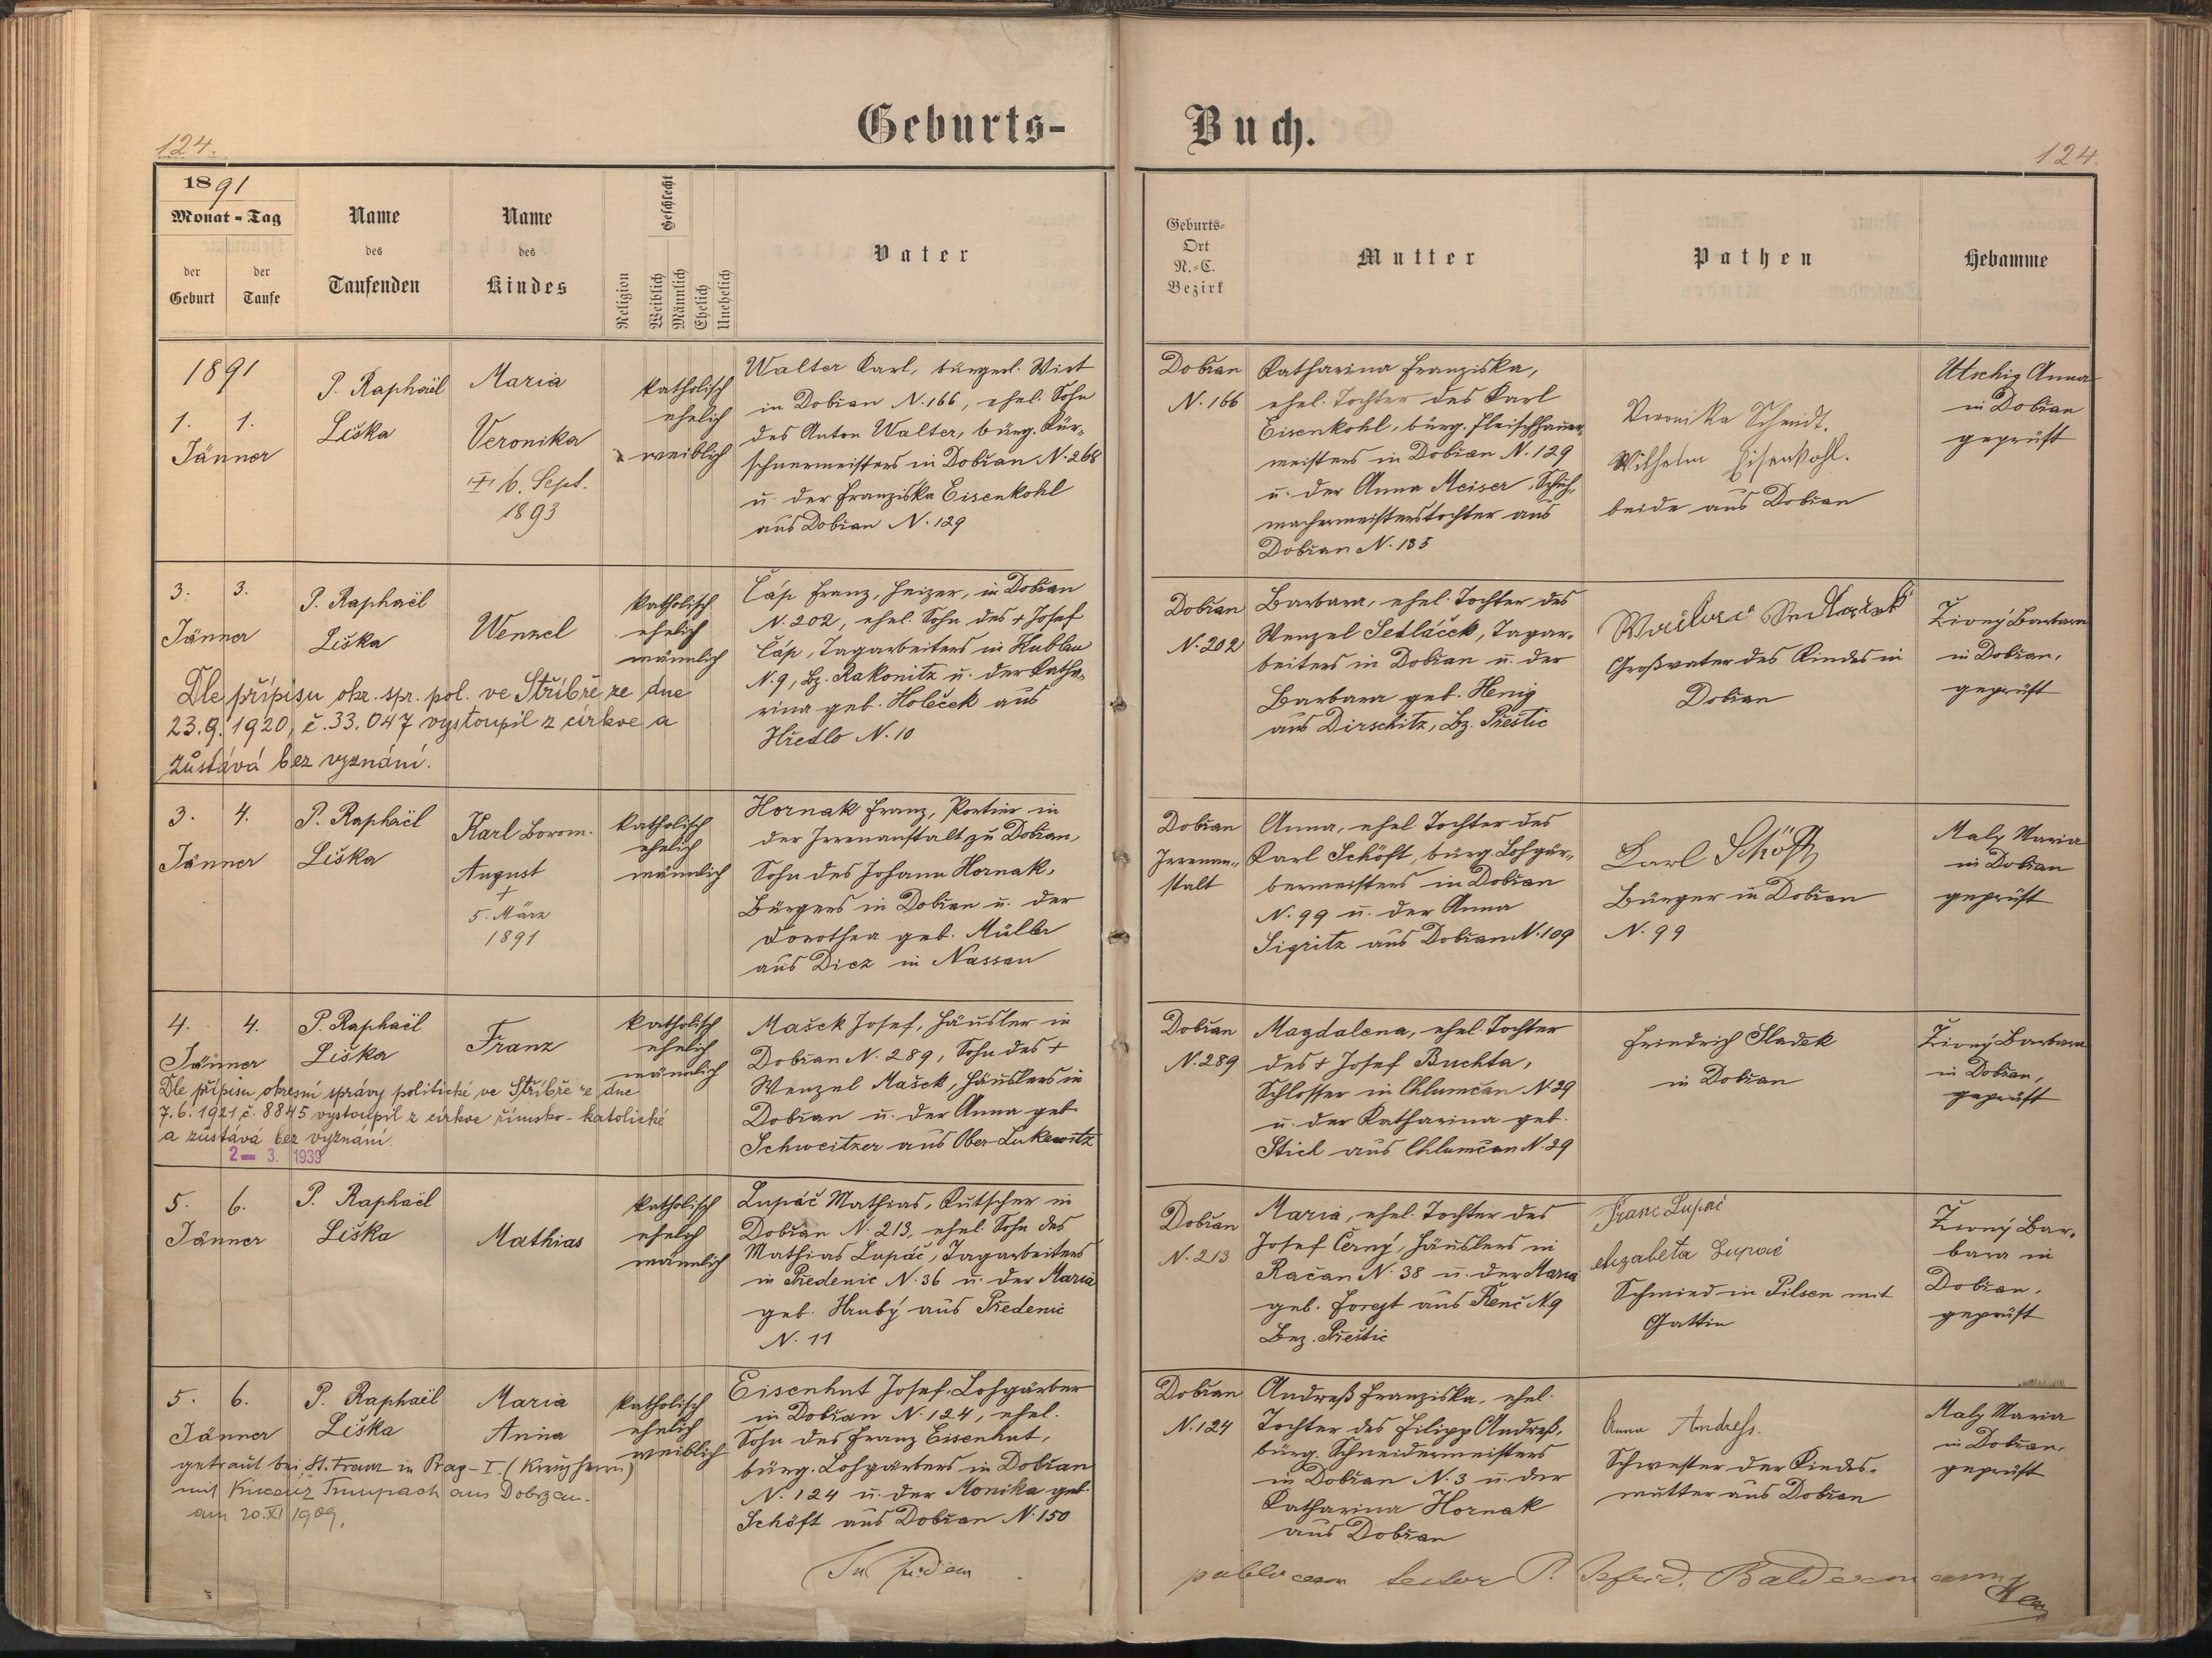 Geburts-
Buch.
124.
124.
1891
Monat-Tag
der Geburt
der Taufe
Name des Taufenden
Name des Kindes
Religion
Geschlecht
Weiblich
Männlich
Ehelich
Unehelich
Vater
Geburts-
Ort
N.-C.
Bezirk
Mutter
Pathen
Hebamme
1891
1. 1.
Jänner
P. Raphaël
Liška
Maria
Veronika
6. Sept.
1893
katholisch
ehelich
weiblich
Walter Karl, bürgerl. Wirt
in Dobřan N. 166, ehel. Sohn
des Anton Walter, bürg. Kür-
schnermeisters in Dobřan N. 268
u. der Franziska Eisenkohl
aus Dobřan N. 129
Dobřan
N. 166
Katharina Franziska,
ehel. Tochter des Karl
Eisenkohl, bürg. Fleischhauer-
meisters in Dobřan N. 129
u. der Anna Meiser, Schuh-
machermeisterstochter aus
Dobřan N. 135
Veronika Schmidt.
Wilhelm Eisenkohl.
beide aus Dobřan
Utschig Anna
in Dobřan
geprüft
3. 3.
Jänner
P. Raphaël
Liška
Wenzel
katholisch
ehelich
männlich
Čáp Franz, Heizer, in Dobřan
N. 202, ehel. Sohn des + Josef
Čáp, Tagarbeiters in Kublau
N. 9, Bz. Rakonitz u. der Katha-
rina geb. Holeček aus
Hředlo N. 10
Dle přípisu okr. spr. pol. ve Stříbře ze dne
23.9.1920, č. 33.047 vystoupil z církve a
zůstává bez vyznání.
Dobřan
N. 202
Barbara, ehel. Tochter des
Wenzel Sedláček, Tagar-
beiters in Dobřan u. der
Barbara geb. Henig
aus Dirschitz, Bz. Přeštic
Großvater des Kindes in
Dobřan
Živný Barbara
in Dobřan,
geprüft
3. 4.
Jänner
P. Raphaël
Liška
Karl Borom.
August
+
5. März
1891
katholisch
ehelich
männlich
Hornak Franz, Portier in
der Irrenanstalt zu Dobřan,
Sohn des Johann Hornak,
Bürgers in Dobřan u. der
Dorothea geb. Müller
aus Diez in Nassau
Dobřan
Irrenan-
stalt
Anna, ehel. Tochter des
Karl Schöft, bürg. Lohgär-
bermeisters in Dobřan
N. 99 u. der Anna
Sigritz aus Dobřan N. 109
Karl Schöft
Bürger in Dobřan
N. 99
Maly Maria
in Dobřan
geprüft
4. 4.
Jänner
P. Raphaël
Liška
Franz
katholisch
ehelich
männlich
Mašek Josef, Häusler in
Dobřan N. 289, Sohn des +
Wenzel Mašek, Häuslers in
Dobřan u. der Anna geb.
Schweitzer aus Ober-Lukawitz
Dle přípisu okresní správy politické ve Stříbře ze dne
7.6.1921 č. 8845 vystoupil z církve římsko-katolické
a zůstává bez vyznání.
2 - 3. 1939
Dobřan
N. 289
Magdalena, ehel. Tochter
des + Josef Buchta,
Schlosser in Chlumčan N. 29
u. der Katharina geb.
Stich aus Chlumčan N. 29
Friedrich Sladek
in Dobřan
Živný Barbara
in Dobřan,
geprüft
5. 6.
Jänner
P. Raphaël
Liška
Mathias
katholisch
ehelich
männlich
Lupáč Mathias, Kutscher in
Dobřan N. 213, ehel. Sohn des
Mathias Lupáč, Tagarbeiters
in Předenic N. 36 u. der Maria
geb. Hrubý aus Předenic
N. 11
Dobřan
N. 213
Maria, ehel. Tochter des
Josef Černý, Häuslers in
Račan N. 38 u. der Maria
geb. Forejt aus Řenč N. 9
Bez. Přeštic
Franc Lupač
Alzabeta Lupač
Schmied in Pilsen mit
Gattin
Živný Bar-
bara in
Dobřan,
geprüft
5. 6.
Jänner
P. Raphaël
Liška
Maria
Anna
katholisch
ehelich
weiblich
Eisenhut Josef, Lohgärber
in Dobřan N. 124, ehel.
Sohn des Franz Eisenhut,
bürg. Lohgärbers in Dobřan
N. 124 u. der Monika geb.
Schöft aus Dobřan N. 150
getraut bei St. Franz in Prag-I. (Kreuzherrn)
mit aus Dobrzan
am 20.XI 1909.
Dobřan
N. 124
Andreß Franziska, ehel.
Tochter des Filipp Andreß,
bürg. Schneidermeisters
in Dobřan N. 3 u. der
Katharina Hornak
aus Dobřan
Anna Andreß.
Schwester der Kindes-
mutter aus Dobřan
Maly Maria
in Dobřan,
geprüft
In fidem
publicam testor P.